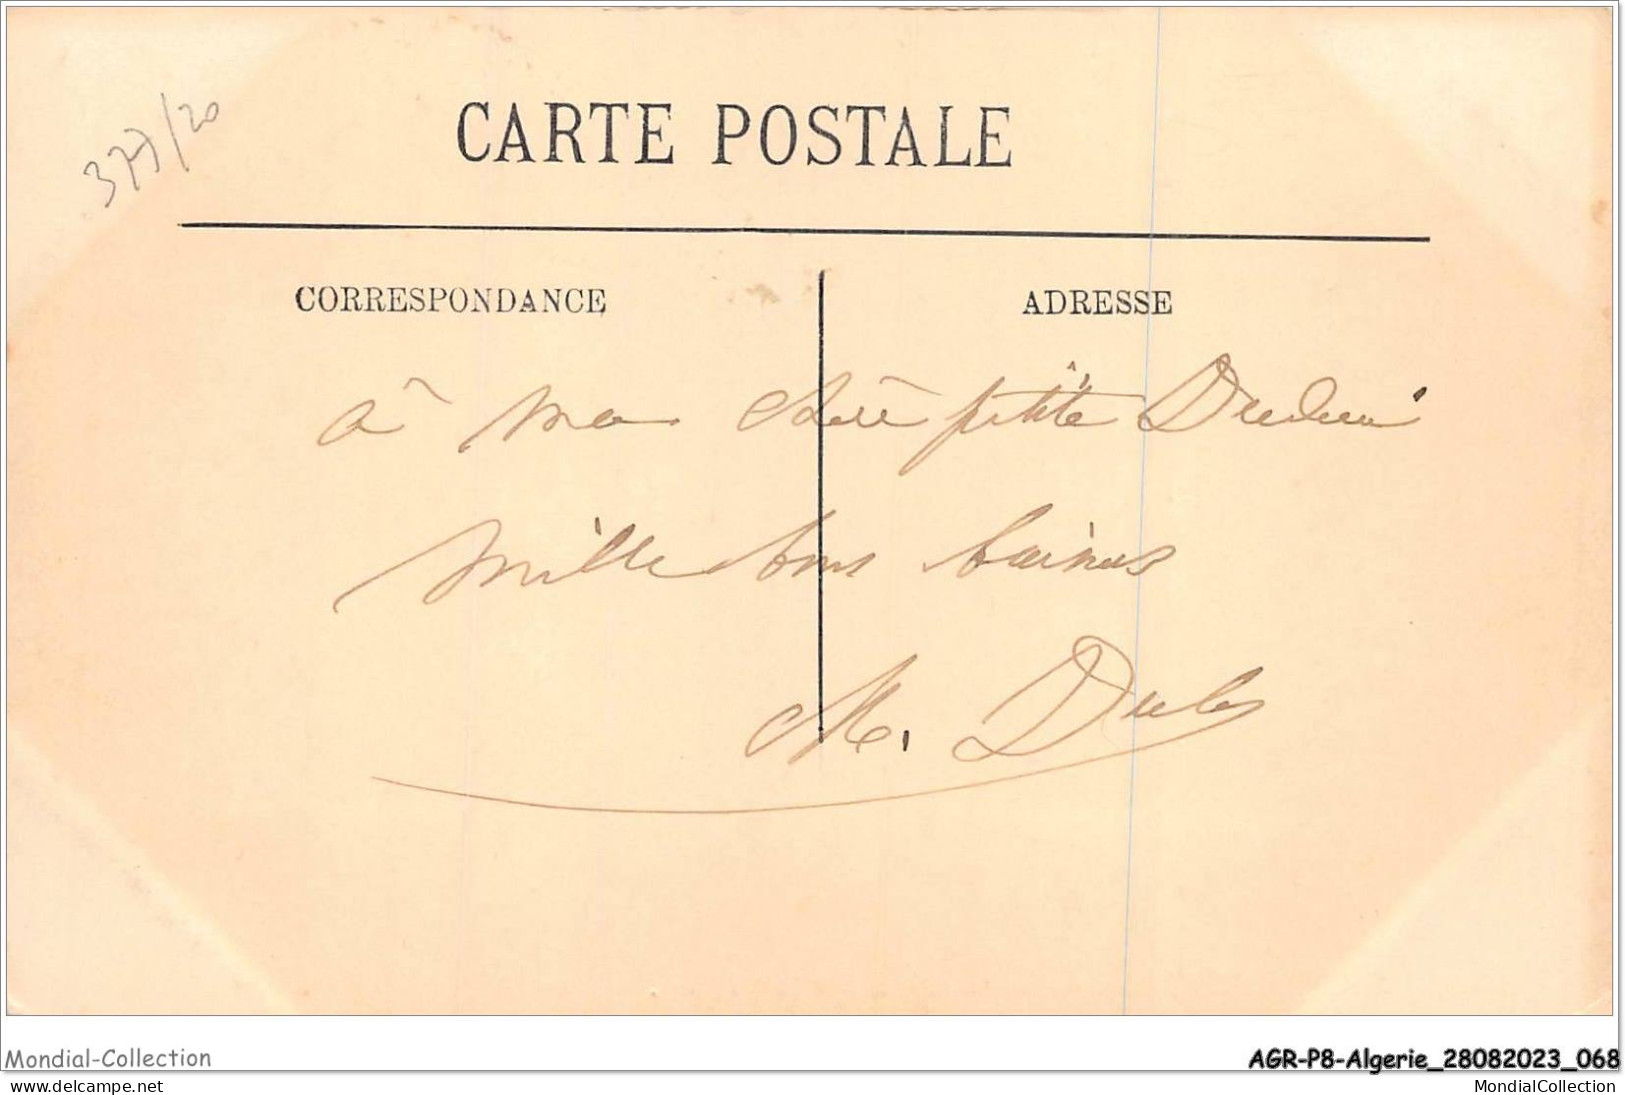 377/20
CARTE POSTALE
CORRESPONDANCE
ADRESSE
à ma chère petite
mille bons baisers
M.
Mondial-Collection
AGR-P8-Algerie_28082023_068
www.delcampe.net
MondialCollection